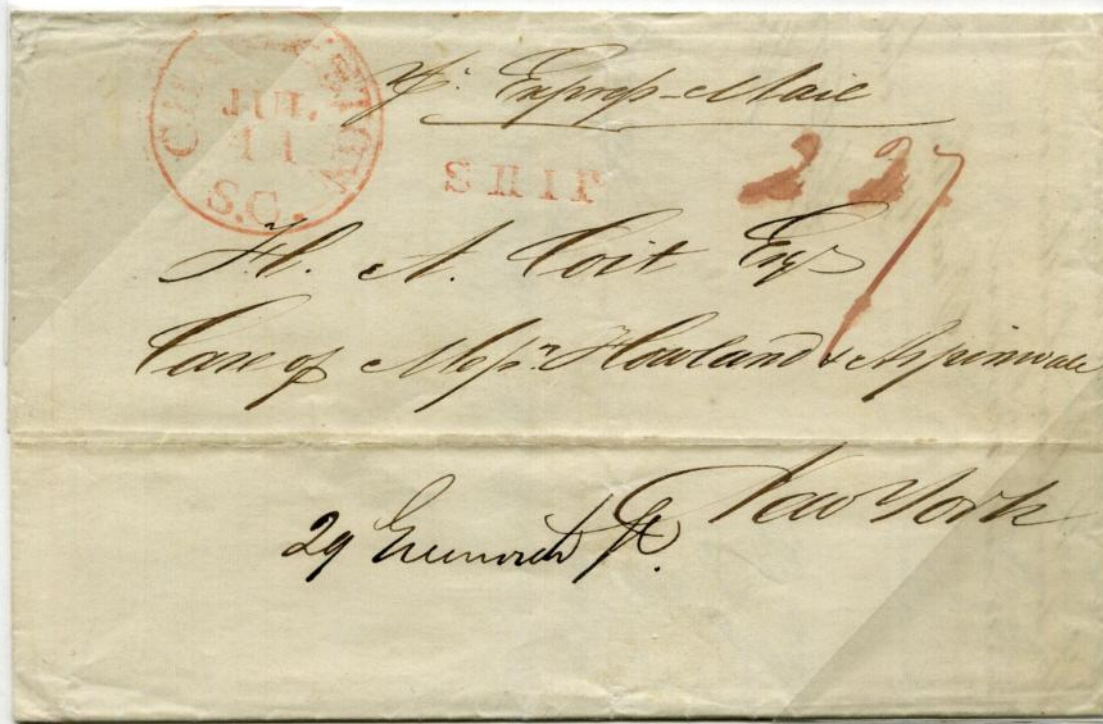 JUL.
11
S.C.
pr. Express-Mail
SHIP
227
H. A. Coit Esqr
Care of Messrs. Howland & Aspinwall
New York
29 Greenwich St.